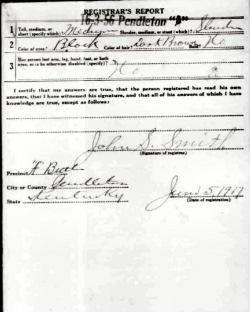 REGISTRAR'S REPORT
16-3-56 Pendleton "A"
1 Tall, medium, or short (specify which)? Medium Slender, medium, or stout (which)? Slender
2 Color of eyes? Black Color of hair? Dark Brown Bald? No
3 Has person lost arm, leg, hand, foot, or both eyes, or is he otherwise disabled (specify)?
No
I certify that my answers are true, that the person registered has read his own answers, that I have witnessed his signature, and that all of his answers of which I have knowledge are true, except as follows:
John S. Smith
(Signature of registrar)
Precinct
City or County Pendleton
State Kentucky
June 5, 1917
(Date of registration)